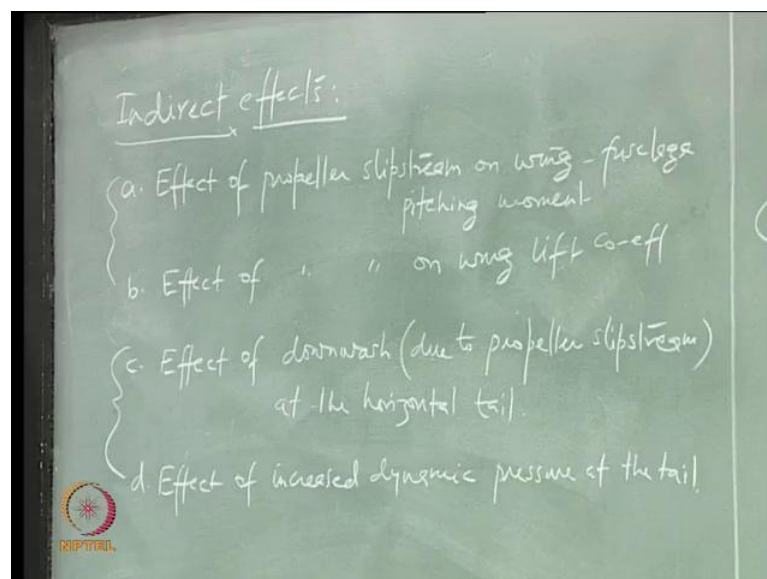 Indirect effects:
a. Effect of propeller slipstream on wing - fuselage
pitching moment
b. Effect of " " on wing lift co-eff
c. Effect of downwash (due to propeller slipstream)
at the horizontal tail.
d. Effect of increased dynamic pressure at the tail.
NPTEL